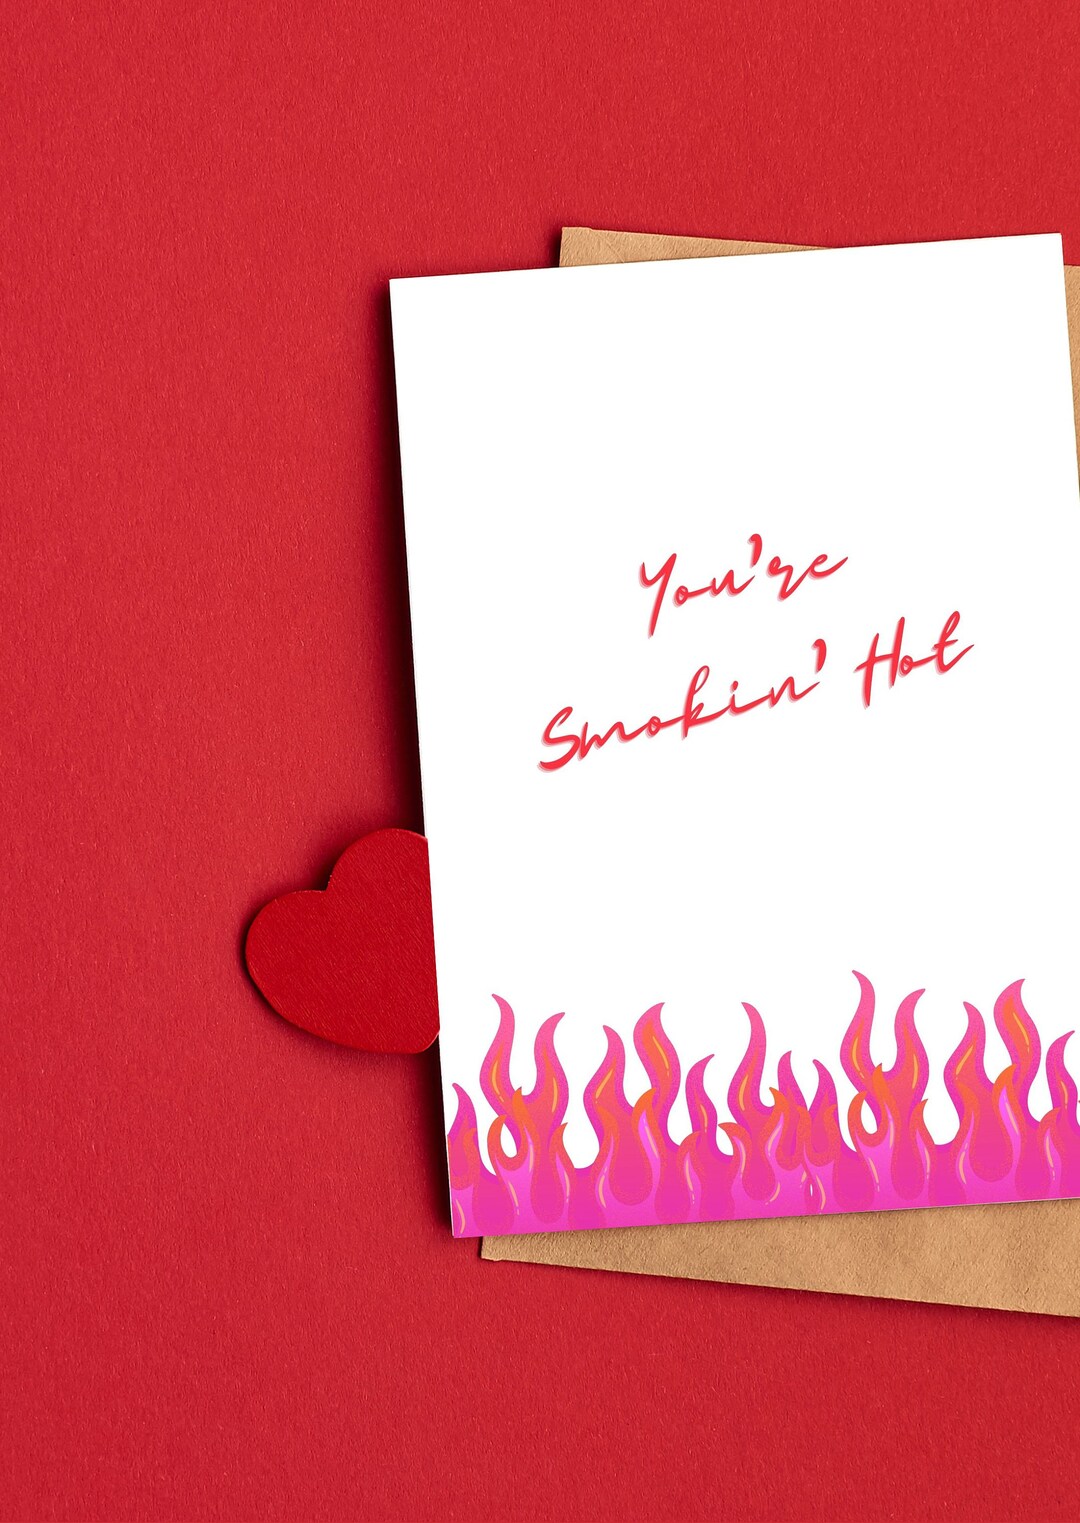 You're
Smokin' Hot